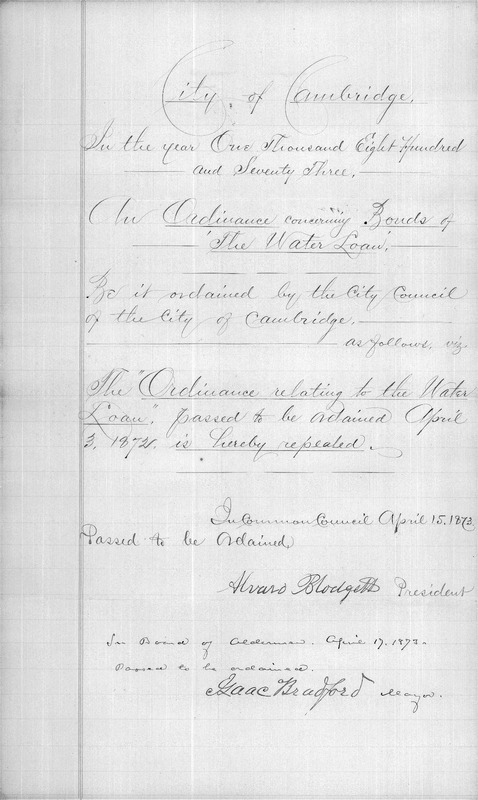 City of Cambridge.
In the year One Thousand Eight Hundred
and Seventy Three.
An Ordinance concerning Bonds of
"The Water Loan".
Be it ordained by the City Council
of the City of Cambridge,
as follows, viz
The "Ordinance relating to the Water
Loan", passed to be ordained April
3, 1872. is hereby repealed.
In Common Council April 15. 1873.
Passed to be Ordained,
Alvaro Blodgett President
In Board of Aldermen. April 17. 1873.
Passed to be ordained.
Isaac Bradford Mayor.